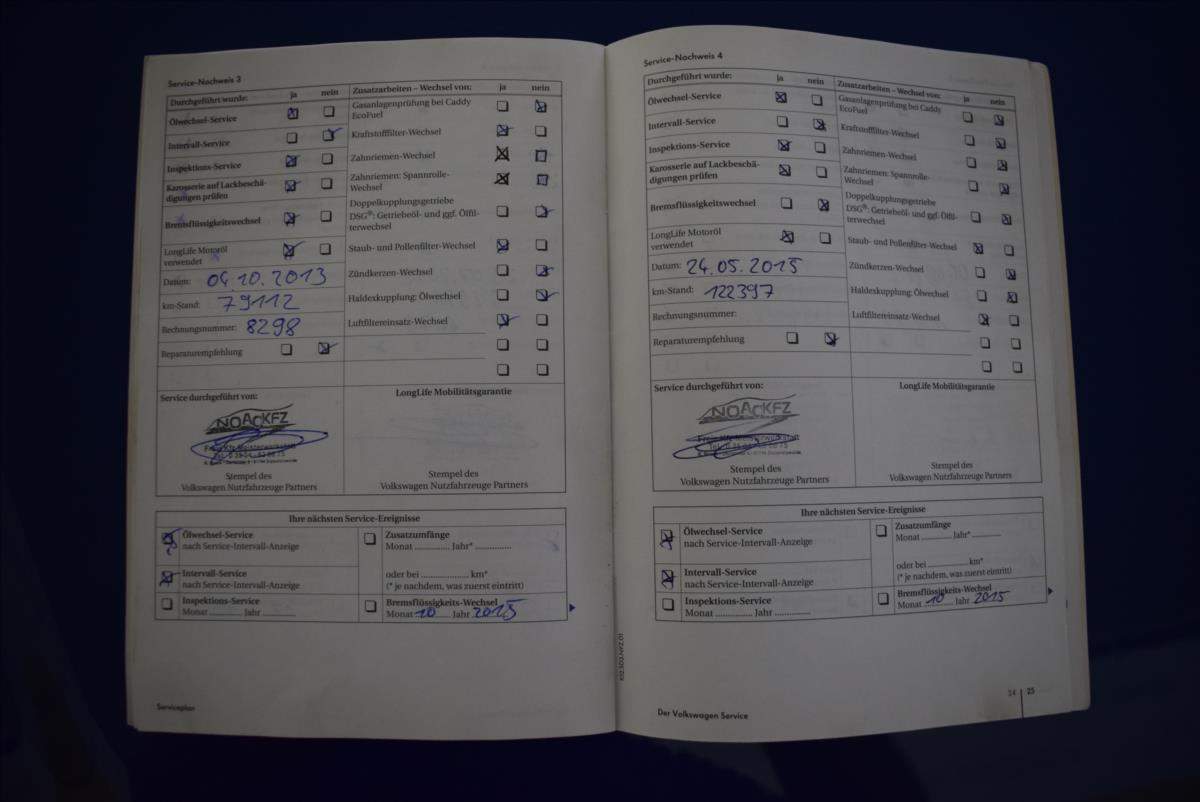 Service-Nachweis 3
Durchgeführt wurde: ja nein Zusatzarbeiten – Wechsel von: ja nein
Ölwechsel-Service
Gasanlagenprüfung bei Caddy
EcoFuel
Intervall-Service
Kraftstofffilter-Wechsel
Inspektions-Service
Zahnriemen-Wechsel
Karosserie auf Lackbeschä-
digungen prüfen
Zahnriemen: Spannrolle-
Wechsel
Bremsflüssigkeitswechsel
Doppelkupplungsgetriebe
DSG®: Getriebeöl- und ggf. Ölfil-
terwechsel
LongLife Motoröl
verwendet
Staub- und Pollenfilter-Wechsel
Datum: 04.10.2013
Zündkerzen-Wechsel
km-Stand: 79112
Haldexkupplung: Ölwechsel
Rechnungsnummer: 8298
Luftfiltereinsatz-Wechsel
Reparaturempfehlung
Service durchgeführt von:
LongLife Mobilitätsgarantie
NOACKFZ
Stempel des
Volkswagen Nutzfahrzeuge Partners
Stempel des
Volkswagen Nutzfahrzeuge Partners
Ihre nächsten Service-Ereignisse
Ölwechsel-Service
nach Service-Intervall-Anzeige
Zusatzumfänge
Monat ............. Jahr* .............
Intervall-Service
nach Service-Intervall-Anzeige
oder bei ................. km*
(* je nachdem, was zuerst eintritt)
Inspektions-Service
Monat ............. Jahr .............
Bremsflüssigkeits-Wechsel
Monat 10 Jahr 2015
Serviceplan
Service-Nachweis 4
Durchgeführt wurde: ja nein Zusatzarbeiten – Wechsel von: ja nein
Ölwechsel-Service
Gasanlagenprüfung bei Caddy
EcoFuel
Intervall-Service
Kraftstofffilter-Wechsel
Inspektions-Service
Zahnriemen-Wechsel
Karosserie auf Lackbeschä-
digungen prüfen
Zahnriemen: Spannrolle-
Wechsel
Bremsflüssigkeitswechsel
Doppelkupplungsgetriebe
DSG®: Getriebeöl- und ggf. Ölfil-
terwechsel
LongLife Motoröl
verwendet
Staub- und Pollenfilter-Wechsel
Datum: 24.05.2015
Zündkerzen-Wechsel
km-Stand: 122397
Haldexkupplung: Ölwechsel
Rechnungsnummer:
Luftfiltereinsatz-Wechsel
Reparaturempfehlung
Service durchgeführt von:
LongLife Mobilitätsgarantie
NOACKFZ
Stempel des
Volkswagen Nutzfahrzeuge Partners
Stempel des
Volkswagen Nutzfahrzeuge Partners
Ihre nächsten Service-Ereignisse
Ölwechsel-Service
nach Service-Intervall-Anzeige
Zusatzumfänge
Monat ............. Jahr* .............
Intervall-Service
nach Service-Intervall-Anzeige
oder bei ................. km*
(* je nachdem, was zuerst eintritt)
Inspektions-Service
Monat ............. Jahr .............
Bremsflüssigkeits-Wechsel
Monat 10 Jahr 2015
24 25
Der Volkswagen Service